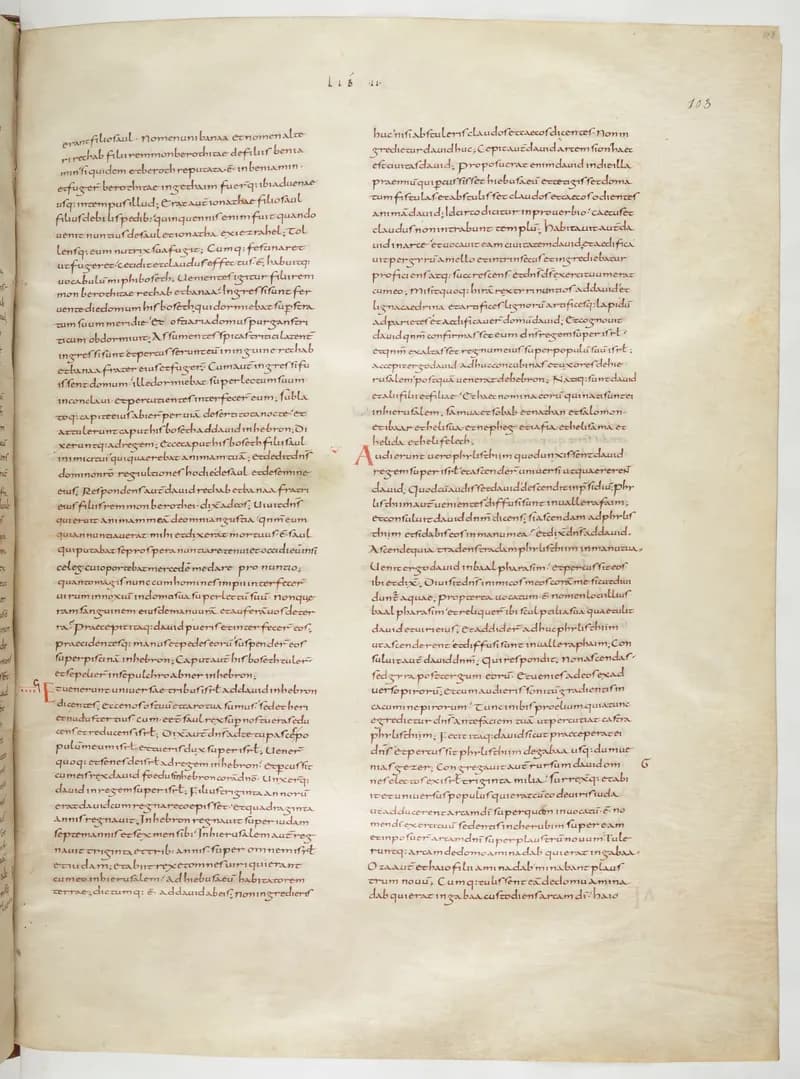 LIB · II ·
103
erant filio saul · Nomen uni banaa et nomen alte
ri rechab filii remmon berothitae de filiis benia
min · siquidem et beroth reputata ē in beniamin ·
et fuger̄ berothitae in gethaim fuer̄q: ibi aduenae
usq: in tempus illud; Erat aut̄ ionathae filio saul
filius debilis pedib: quinquennis enim fuit quando
uenit nuntius de saul et ionatha ex iezrahel; Tol
lens q: eum nutrix sua fugit; Cumq: festinaret
ut fugeret cecidit et claudus effectus ē; habuitq:
uocabulū miphiboseth; Uenientes igitur filii rem
mon berothitae rechab et banaa ingressi sunt fer
uente die domum hisboseth qui dormiebat sup stra
tum suum meridie · Et ostiaria domus purgans tri
ticum obdormiuit; Assumentes spicas tritici latent̄
ingressi sunt et percusserunt eū in inguine rechab
et banaa frater eius et fuger̄; Cum aut̄ ingressi fu
issent domum ille dormiebat super lectum suum
in conclaui et percutientes interfecer̄ eum; subla
toq: capite eius abier̄ per uiā deserti tota nocte · et
attulerunt caput hisboseth ad dauid in hebron; Di
xeruntq: ad regem; Ecce caput hisboseth filii saul
inimici tui qui quaerebat animam tuā; et dedit dn̄s
domino nr̄o regi ultiones hodie de saul et de semine
eius; Respondens aut̄ dauid rechab et banaa fratri
eius filiis remmon berothei · dix̄ ad eos; Uiuit dn̄s
qui eruit animam meā de omni angustia · qm̄ eum
qui annuntiauerat mihi et dixerat mortuus ē saul
qui putabat se prospera nuntiare tenui et occidi eū in si
celeg cui oportebat mercedē me dare pro nuntio;
quanto magis nunc cum homines impii interfecer̄
uirum innoxiū in domo sua sup lectū suū · non quae
ram sanguinem eius de manu ur̄a et auferā uos de ter
ra; Praecepit itaq: dauid pueris et interfecer̄ eos;
praecidentesq: manus et pedes eorū suspender̄ eos
super piscinā in hebron; Caput aut̄ hisboseth tuler̄
et sepelier̄ in sepulchro abner in hebron;
Et uenerunt uniuersae tribus isrl̄ ad dauid in hebron
dicentes; Ecce nos os tuū et caro tua sumus · sed et heri
et nudius tertius cum eēt saul rex sup nos tu eras edu
cens et reducens isrl̄; Dix̄ aut̄ dn̄s ad te tu pasces po
pulum meum isrl̄ et tu eris dux super isrl̄; Uener̄
quoq: et senes de isrl̄ ad regem in hebron · et pcussit
cum eis rex dauid foedus in hebron corā dn̄o; Unxerq:
dauid in regem super isrl̄; Filius triginta annorū
erat dauid cum regnare coepisset · et quadraginta
annis regnauit; In hebron regnauit super iudam
septem annis et sex mensib: In hierusalem aut̄ reg
nauit triginta et trib: annis super omnem isrl̄
et iudam; et abiit rex et omnes uiri qui erant
cum eo in hierusalem · ad hiebusaeū habitatorem
terrae; dictumq: ē · ad dauid ab eis; Non ingredieris
huc nisi abstuleris claudos et caecos dicentes · Non in
gredietur dauid huc; Cepit aut̄ dauid arcem sion haec
est ciuitas dauid; Proposuerat enim dauid in die illa
praemiū qui percussisset hiebusaeū et tetigisset doma
tum fistulas et abstulisset claudos et caecos odientes
animā dauid; Idcirco dicitur in prouerbio · caecus et
claudus non intrabunt templū; Habitauit aut̄ da
uid in arce · et uocauit eam ciuitatem dauid, et aedifica
uit per gyrū a mello et intrinsecus et ingrediebatur
proficiens atq: succrescens et dn̄s ds̄ exercituum erat
cum eo; Misit quoq: hirā rex tyri nuntios ad dauid et
ligna caedrina et artifices lignorū artificesq: lapidū
ad parietes et aedificauer̄ domū dauid; Et cognouit
dauid qn̄m confirmasset eum dn̄s regem super isrl̄ ·
et qn̄m exaltasset regnum eius super populū suū isrl̄;
accepit ergo dauid adhuc concubinas et uxores de hie
rusalem postquā uenerat de hebron; Natiq: sunt dauid
et alii filii et filiae · Et haec nomina eorū qui nati sunt ei
in hierusalem; samua et sobab et nathan et salomon ·
et ibaar et helisua et nepheg · et iafia et helisama et
helida et helifelech;
Audierunt uero philisthiim quod unxissent dauid
regem super isrl̄ et ascender̄ uniuersi ut quaererent̄
dauid; Quod cū audisset dauid descendit in p̄sidiū; Phi
listhiim aut̄ uenientes diffusi sunt in ualle rafaim;
et consuluit dauid dn̄m dicens; si ascendam ad philis
thiim et si dabis eos in manu mea · Et dix̄ dn̄s ad dauid.
Ascende quia tradens tradam philisthiim in manu tua;
Uenit ergo dauid in baal pharasim · et percussit eos
ibi et dix̄; Diuisit dn̄s inimicos meos corā me sicut diui
duntᷓ aquae; propterea uocatum ē nomen loci illius
baal pharasim · et reliquer̄ ibi sculptilia sua quae tulit
dauid et uiri eius; Et addider̄ adhuc philisthiim
ut ascenderent et diffusi sunt in ualle raphaim; Con
suluit aut̄ dauid dn̄m; Qui respondit; Non ascendas ·
sed gyra post tergum eorū · Et uenies ad eos ex ad
uerso pirorū; et cum audieris sonitū gradientis in
cacumine pirorum · Tunc inibis proelium quia tunc
egredietur dn̄s ante faciem tuā ut percutiat castra
philisthiim; Fecit itaq: dauid sicut praeceperat ei
dn̄s · et percussit philisthiim de gabaa usq: dum ue
nias gezer; Congregauit aut̄ rursum dauid om
nes electos ex isrl̄ triginta milia · surrexitq: et abi
it et uniuersus populus qui erat cū eo de uiris iuda
ut adducerent arcam dī super quem inuocatū ē no
men dn̄i exercituū sedentis in cherubim super eam
et inposuer̄ arcam dn̄i super plaustrū nouum Tule
runtq: arcam de domo aminadab qui erat in gabaa ·
Oza aut̄ et haio filii aminadab minabant plaus
trum nouū; Cumq: tulissent eā de domu amina
dab qui erat in gabaa custodiens arcam dī · haio